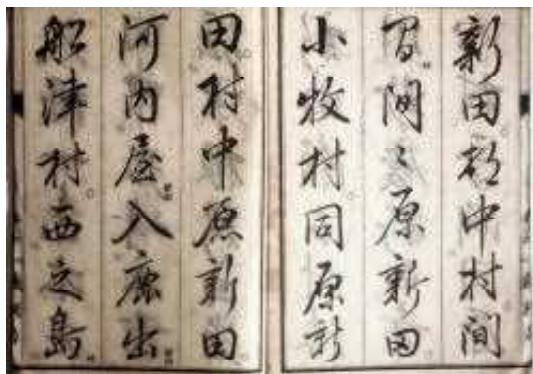 新田村中村間
間〻原新田
小牧村同原新
田村中原新田
河内屋入鹿出
船津村西之島